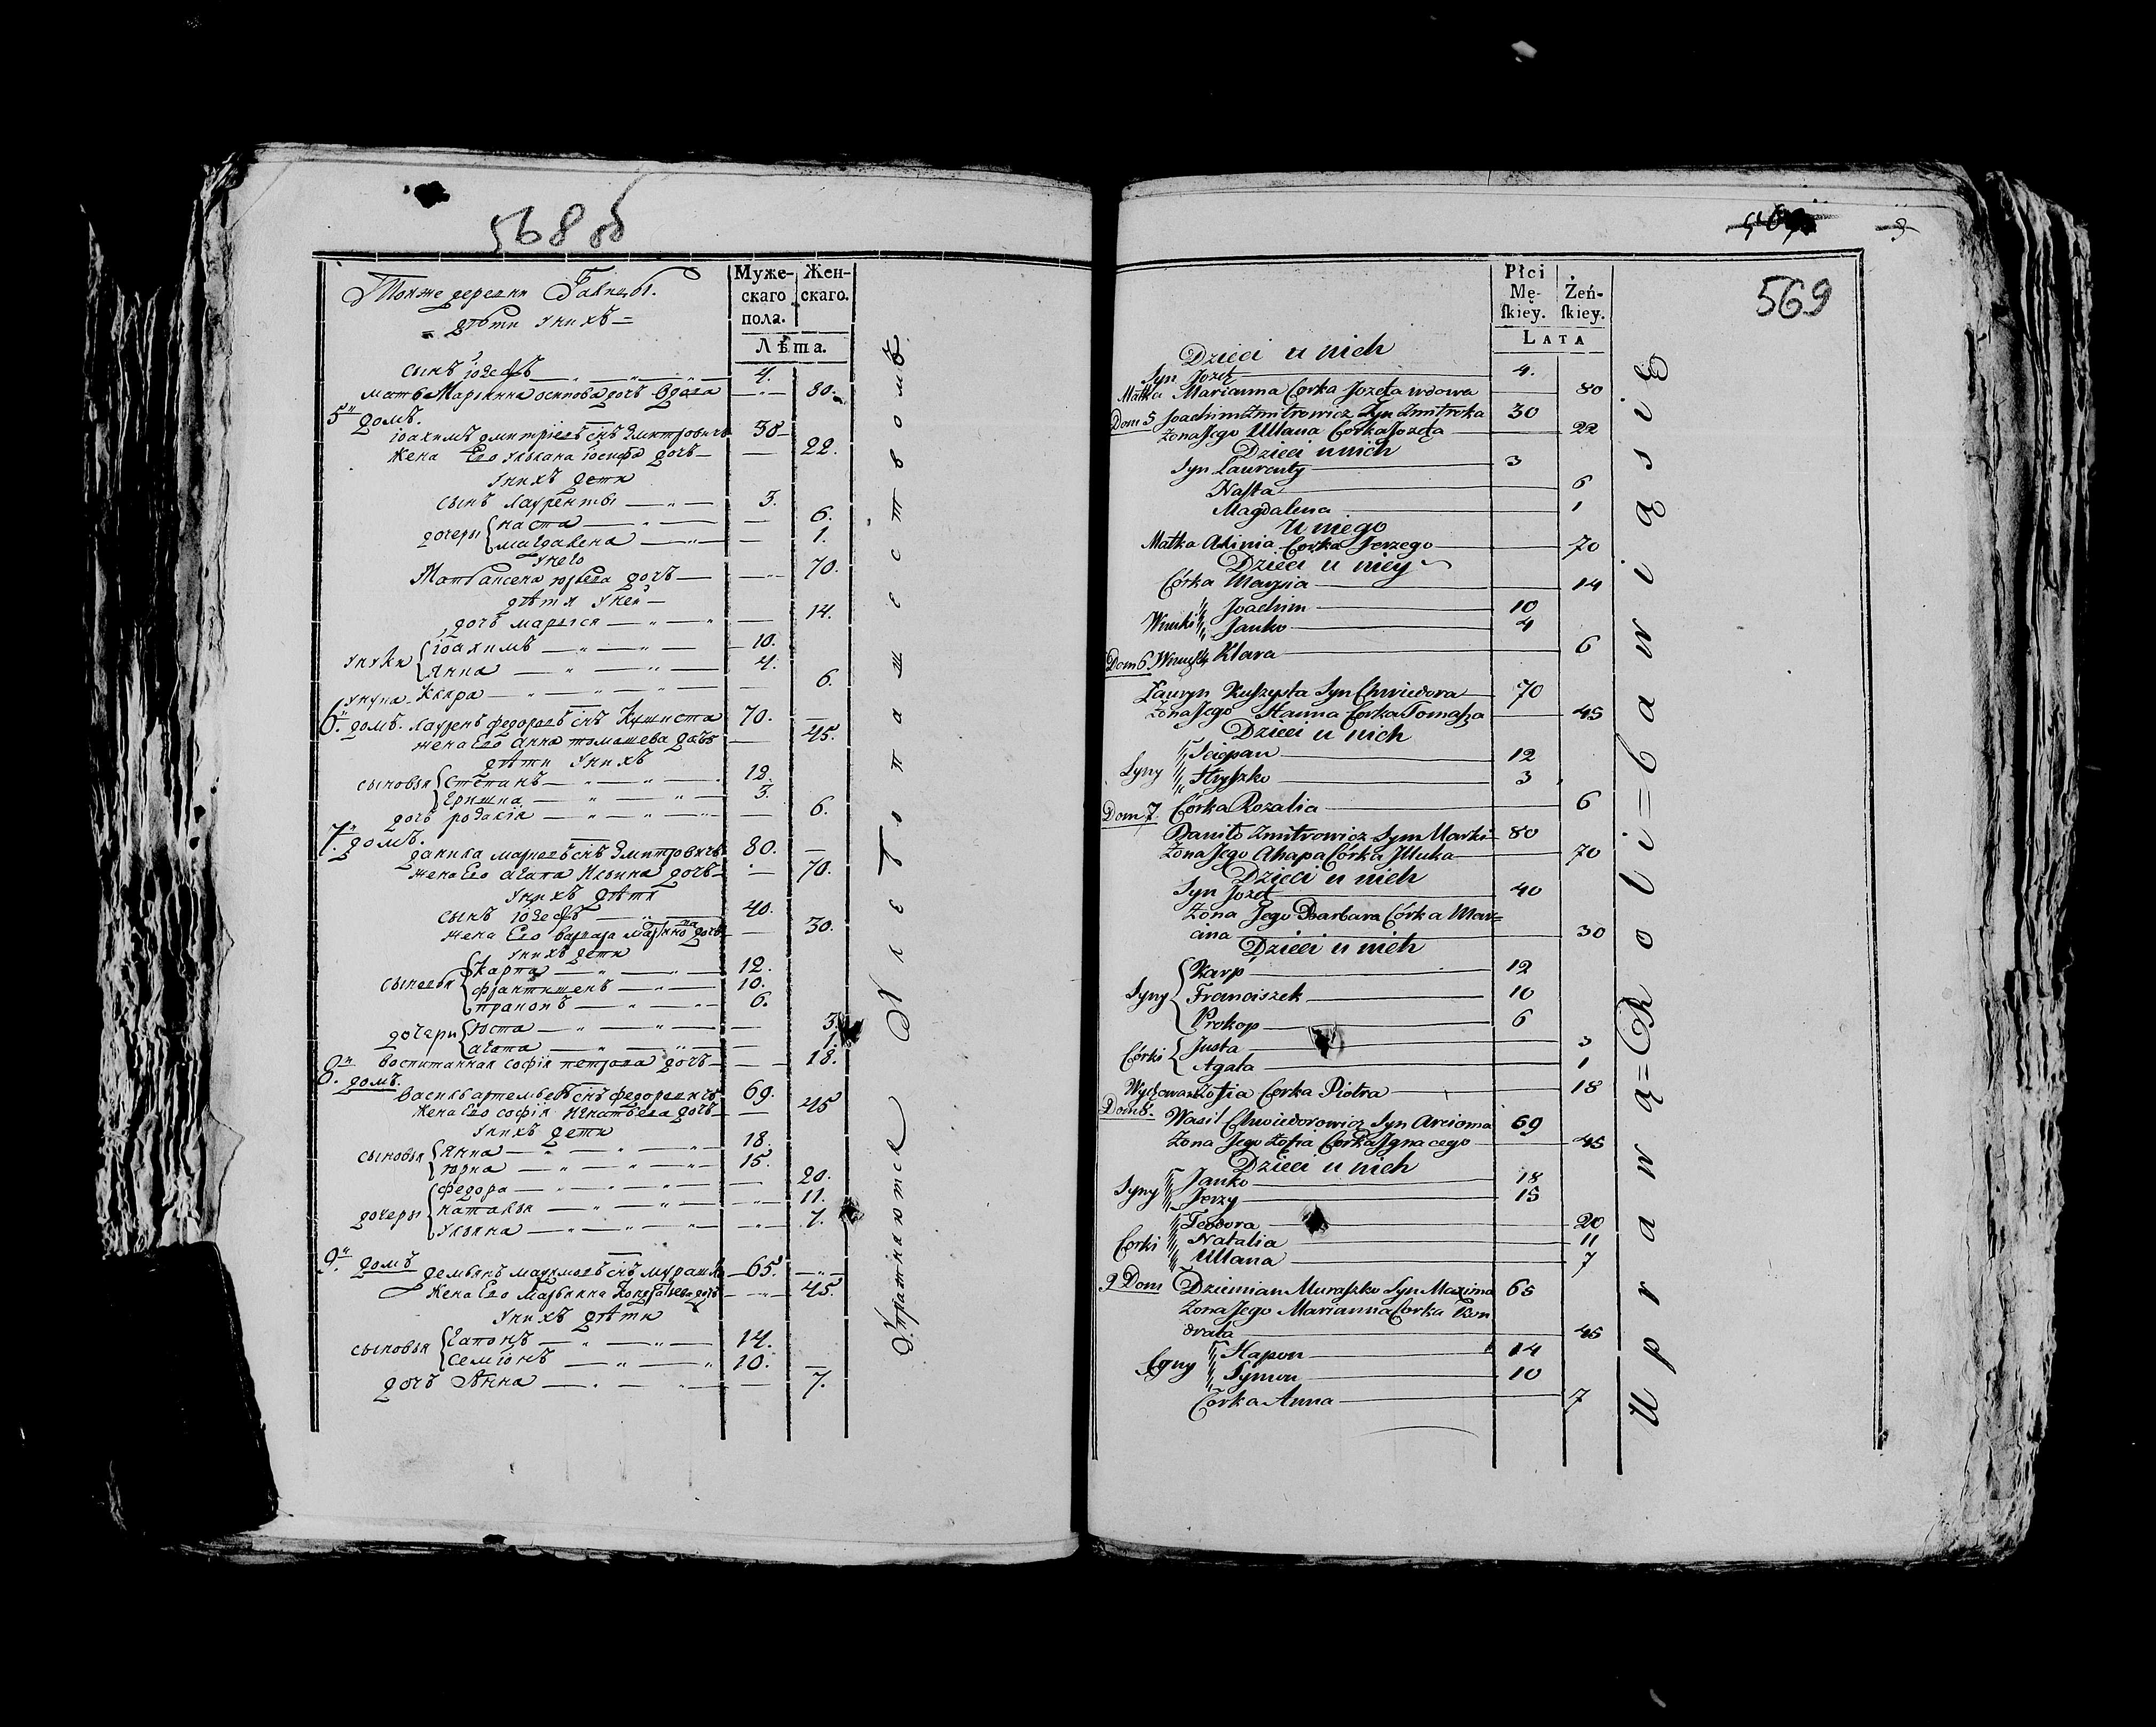 568 об
Тойже деревни
Муже-
скаго
пола.
Жен-
скаго.
Лѣта.
= дѣти унихъ =
сынъ іозефъ 4.
мать Марьяна осипова дочь вдова 80.
5й домъ.
іоахимъ дмитріевъ снъ Змитровичъ 30
жена Его ульяна іосифа дочь 22.
унихъ дети
сынъ лауренты 3.
дочери наста 6.
магдалена 1.
унего
Мать аксеня юрьева дочь 70.
дѣти уней
дочь марыся 14.
унуки іоахимъ 10.
янка 4.
унука Кляра 6.
6й домъ. лауренъ федоровъ снъ Кушиста 70.
жена Его анна томашева дочь 45.
дѣти унихъ
сыновья степанъ 12.
гришка 3.
дочь розалія 6.
7й домъ.
данила марковъ снъ Змитровичъ 80.
жена Его агапа Ильина дочь 70.
унихъ дѣти
сынъ іозефъ 40.
жена Его варвара дочь 30.
унихъ дети
сыновья карпъ 12.
францишекъ 10.
пракопъ 6.
дочери юста 3.
агата 1.
воспитанная софія петрова дочь 18.
8й домъ.
василь артемьевъ снъ федоровичъ 69.
жена Его софія Игнатьева дочь 45
унихъ дети
сыновья янка 18.
юрка 15.
дочеры федора 20.
наталья 11.
ульяна 7.
9й домъ демьянъ максимовъ снъ мурашко 65.
жена Его Марьянна Кондратьева дочь 45.
унихъ дѣти
сыновья гапонъ 14.
семіонъ 10.
дочь Анна 7.
569
Płci
Mę-
ſkiey.
Żeń-
ſkiey.
LATA
Dzieci u nich
Syn Jozef 4.
Matka Marianna Corka Jozefa wdowa 80
Dom 5 Joachim Zmitrowicz Syn Zmitrka 30
Zona Jego Ullana Corka Jozefa 22
Dzieci u nich
Syn Laurenty 3
Nasta 6
Magdalena 1
U niego
Matka Axinia Corka Jerzego 70
Dzieci u niey
Córka Marysia 14
Wnuki Joachim 10
Janko 4
Dom 6 Wnuczka Klara 6
Ławryn Kuſzysta Syn Chwiedora 70
Zona Jego Hanna Corka Tomaſza 45
Dzieci u nich
Syny Sciepan 12
Hryſzko 3
Dom 7. Córka Rozalia 6
Daniło Zmitrowicz Syn Marki 80
Zona Jego Ahapa Córka Jlluka 70
Dzieci u nich
Syn Jozef 40
Zona Jego Barbara Córka Mar=
cina 30
Dzieci u nich
Syny Karp 12
Franciszek 10
Prokop 6
Córki Justa 3
Agata 1
Zofia Corka Piotra 18
Dom 8. Wasil Chwiedorowicz Syn Arcioma 69
Zona Jego Zofia Corka Jgnacego 45
Dzieci u nich
Syny Janko 18
Jerzy 15
Corki Teodora 20
Natalia 11
Ullana 7
9 Dom Dziemian Muraſzko Syn Maxima 65
Zona Jego Marianna Corka Kon
drata 45
Syny Hapon 14
Symon 10
Córka Anna 7
Uprawą = Roli = bawiąsiE